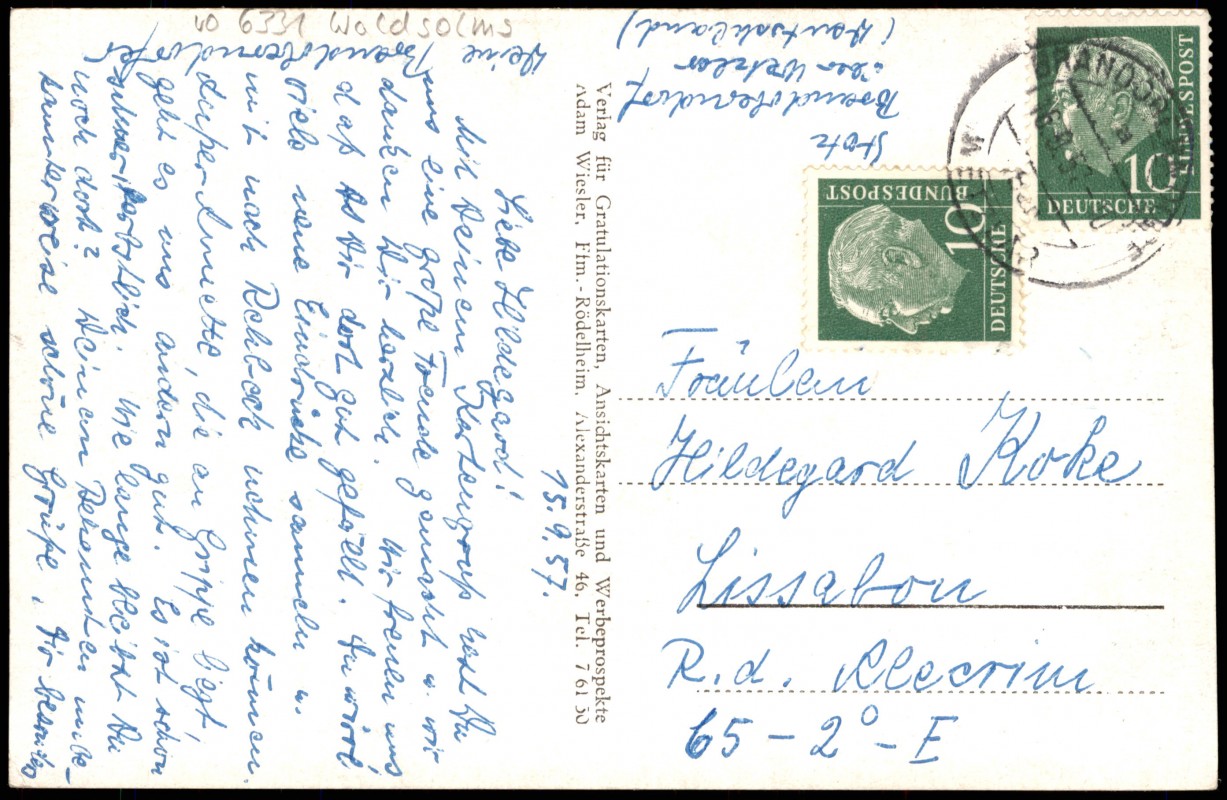 vo 6331 Waldsolms
15.9.57.
Liebe Hildegard!
Mit Deinem Kartengruß hast Du
uns eine große Freude gemacht u. wir
danken Dir herzlich. Wir freuen uns
daß es Dir dort gut gefällt. Du wirst
viele neue Eindrücke sammeln u.
mit nach Rehbach nehmen können.
Außer Annette, die an Grippe liegt,
geht es uns andern gut. Es ist schon
herbstlich. Wie lange bleibst Du
noch dort? Deinen Bekannten unbe-
kannterweise schöne Grüße, Dir besonders
Deine Brandoberndorfer
Stotz
Brandoberndorf
über Wetzlar
(Deutschland)
Verlag für Gratulationskarten, Ansichtskarten und Werbeprospekte
Adam Wiesler, Ffm.-Rödelheim, Alexanderstraße 46, Tel. 7 61 30
10
DEUTSCHE
BUNDESPOST
10
DEUTSCHE
BUNDESPOST
Fräulein
Hildegard Koke
Lissabon
R.d. Alecrim
65-2°-E